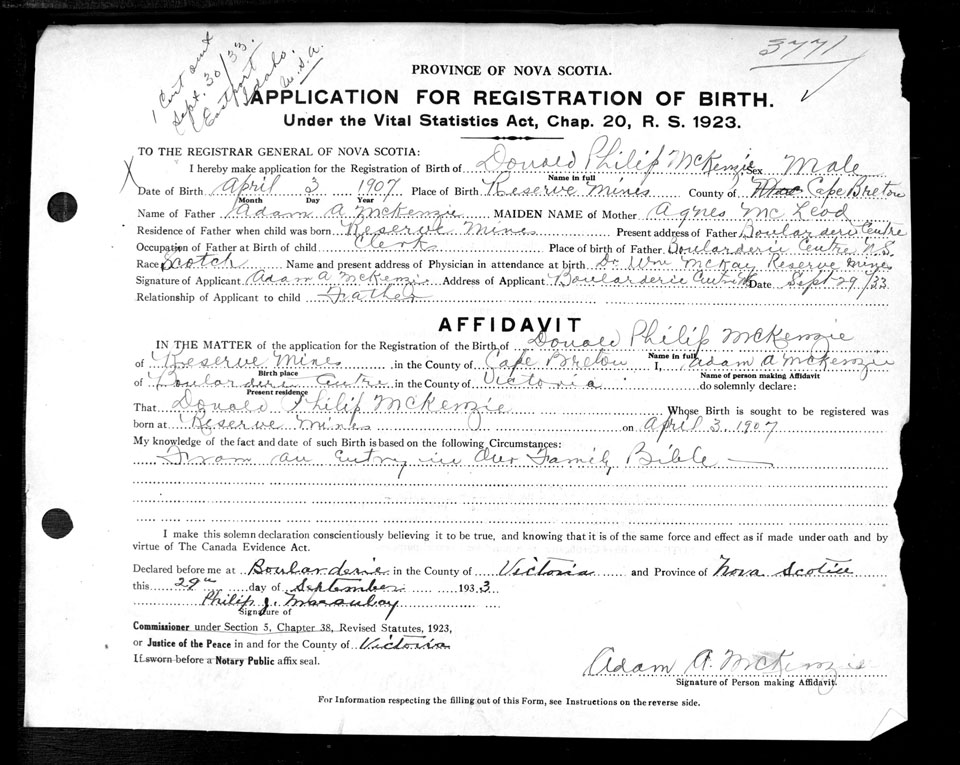 1 Cert out
Sept. 30/33.
Eastport
Idaho.
U.S.A.
3771
PROVINCE OF NOVA SCOTIA.
APPLICATION FOR REGISTRATION OF BIRTH.
Under the Vital Statistics Act, Chap. 20, R. S. 1923.
TO THE REGISTRAR GENERAL OF NOVA SCOTIA:
I hereby make application for the Registration of Birth of Donald Philip McKenzie Sex Male
Name in full
X Date of Birth April 3 1907 Place of Birth Reserve Mines County of Cape Breton
Month Day Year
Name of Father Adam A McKenzie MAIDEN NAME of Mother Agnes McLeod
Residence of Father when child was born Reserve Mines Present address of Father Boularderie Centre
Occupation of Father at Birth of child Clerk Place of birth of Father Boularderie Centre N.S.
Race Scotch Name and present address of Physician in attendance at birth Dr Wm McKay Reserve Mines
Signature of Applicant Adam A McKenzie Address of Applicant Boularderie Centre Date Sept 29/33
Relationship of Applicant to child Father
AFFIDAVIT
IN THE MATTER of the application for the Registration of the Birth of Donald Philip McKenzie
Name in full
of Reserve Mines in the County of Cape Breton I, Adam A McKenzie
Birth place Name of person making Affidavit
of Boularderie Centre in the County of Victoria do solemnly declare:
Present residence
That Donald Philip McKenzie Whose Birth is sought to be registered was
born at Reserve Mines on April 3, 1907
My knowledge of the fact and date of such Birth is based on the following Circumstances:
From an Entry in Our Family Bible —
I make this solemn declaration conscientiously believing it to be true, and knowing that it is of the same force and effect as if made under oath and by
virtue of The Canada Evidence Act.
Declared before me at Boularderie in the County of Victoria and Province of Nova Scotia
this 29th day of September 1933
Philip J. Macaulay
Signature of
Commissioner under Section 5, Chapter 38, Revised Statutes, 1923,
or Justice of the Peace in and for the County of Victoria
If sworn before a Notary Public affix seal.
Adam A. McKenzie
Signature of Person making Affidavit.
For Information respecting the filling out of this Form, see Instructions on the reverse side.